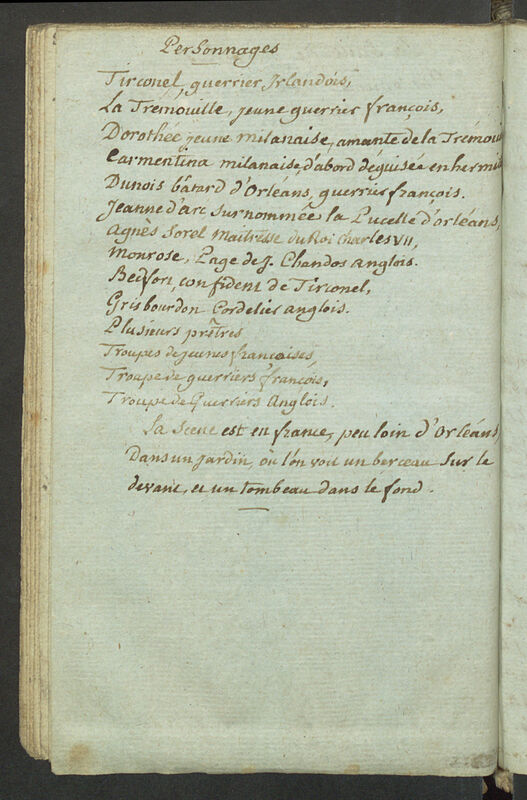 Personnages
Tirconel, guerrier Irlandois,
La Tremouille, jeune guerrier françois,
Dorothée jeune milanaise, amante de la Trémoui
Carmentina milanaise, d'abord deguisée en hermi
Dunois bâtard d'Orléans, guerrier françois.
Jeanne d'arc surnommée la Pucelle d'orléans,
Agnès Sorel Maitresse du Roi Charles VII,
Monrose, Page de J. Chandos Anglois.
Bedfort, confident de Tirconel,
Grisbourdon Cordelier anglois.
Plusieurs prêtres
Troupes de jeunes françaises,
Troupe de guerriers françois,
Troupe de Guerriers Anglois.
La Scene est en france, peu loin d'Orléans
Dans un jardin, où l'on voit un berceau sur le
devant, et un tombeau dans le fond.